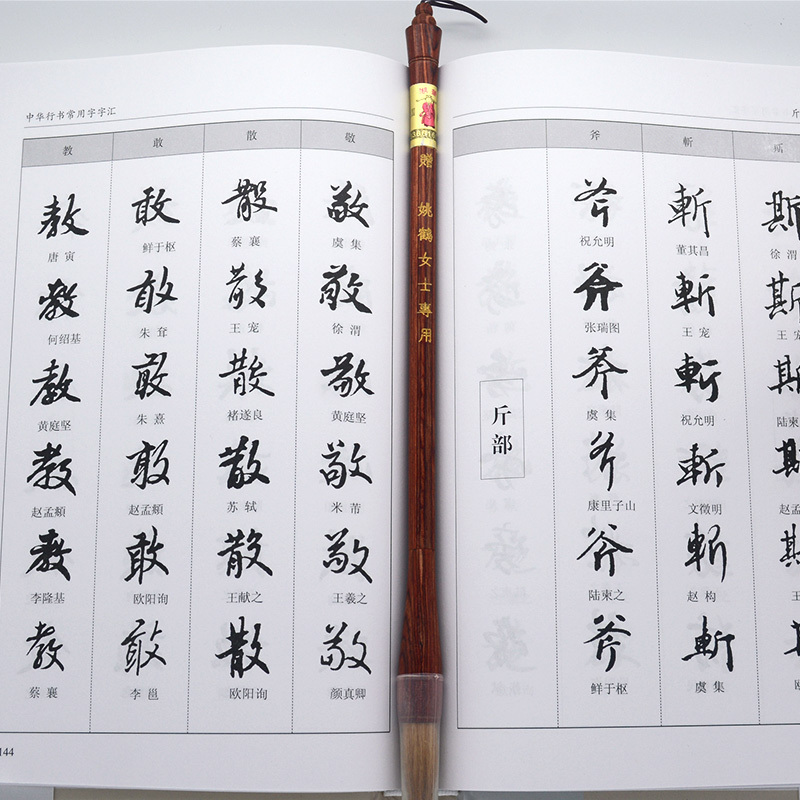 中华行书常用字字汇
教 敢 散 敬
教 敢 散 敬
唐寅 鲜于枢 蔡襄 虞集
教 敢 散 敬
何绍基 朱耷 王宠 徐渭
教 敢 散 敬
黄庭坚 朱熹 褚遂良 黄庭坚
教 敢 散 敬
赵孟頫 赵孟頫 苏轼 米芾
教 敢 散 敬
李隆基 欧阳询 王献之 王羲之
教 敢 散 敬
蔡襄 李邕 欧阳询 颜真卿
144
赠 姚鹤女士專用
斤部
斧 斬
斧 斬 斯
祝允明 董其昌 徐渭
斧 斬 斯
张瑞图 王宠
斧 斬 斯
虞集 祝允明
斧 斬 斯
康里子山 文徵明
斧 斬
陆柬之 赵构
斧 斬
鲜于枢 虞集